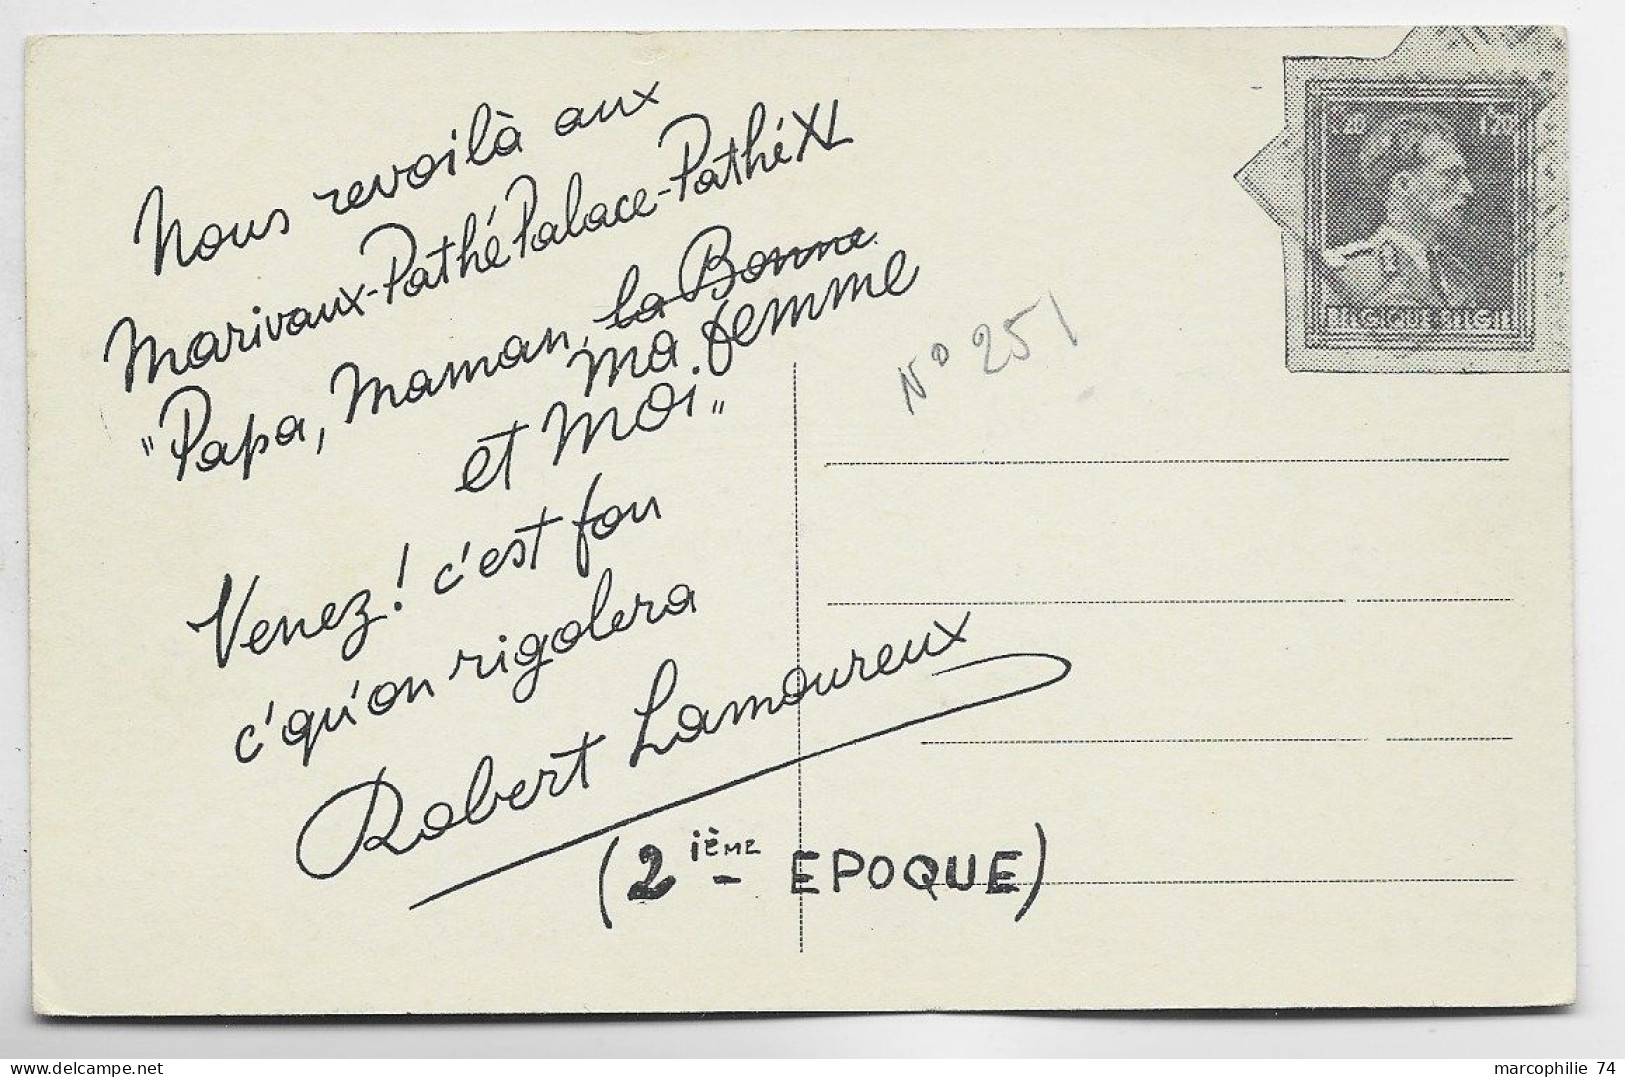 Nous revoilà aux
Marivaux-Pathé Palace-Pathé XL
"Papa, Maman, la Bonne
ma femme
et Moi."
Venez! c'est fou
c'qu'on rigolera
Robert Lamoureux
(2ième EPOQUE)
N° 251
1.50
BELGIQUE BELGIË
marcophilie 74